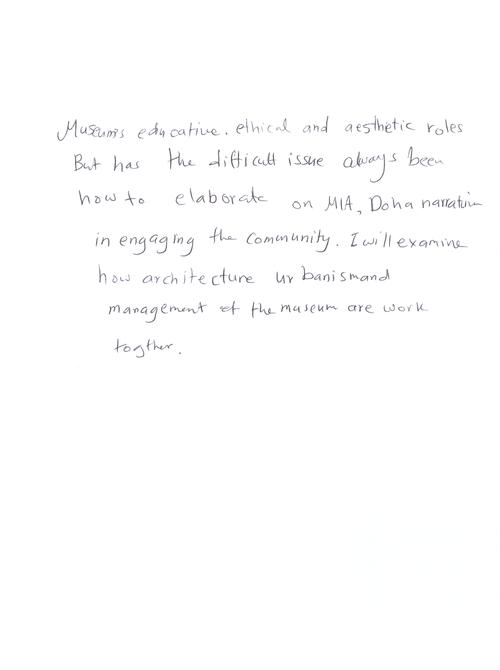 Museums educative. ethical and aesthetic roles
But has the difficult issue always been
how to elaborate on MIA, Doha narrative
in engaging the community. I will examine
how architecture urbanismand
management of the museum are work
togther.